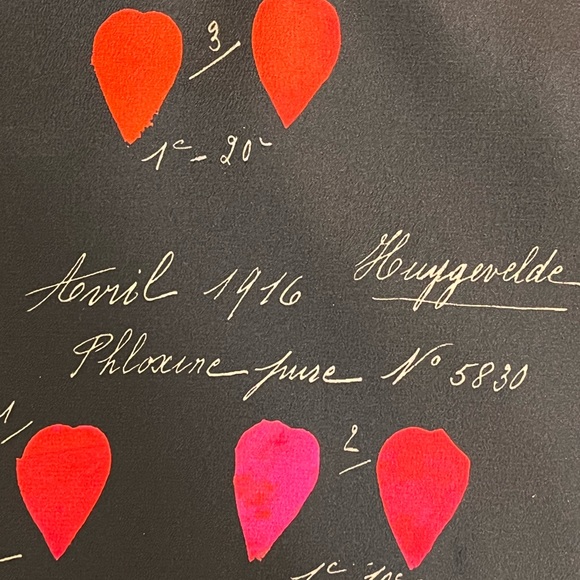 3/
1c - 20c
Avril 1916 Huygevelde
Phloxine pure No 5830
1/
2/
1c 10c